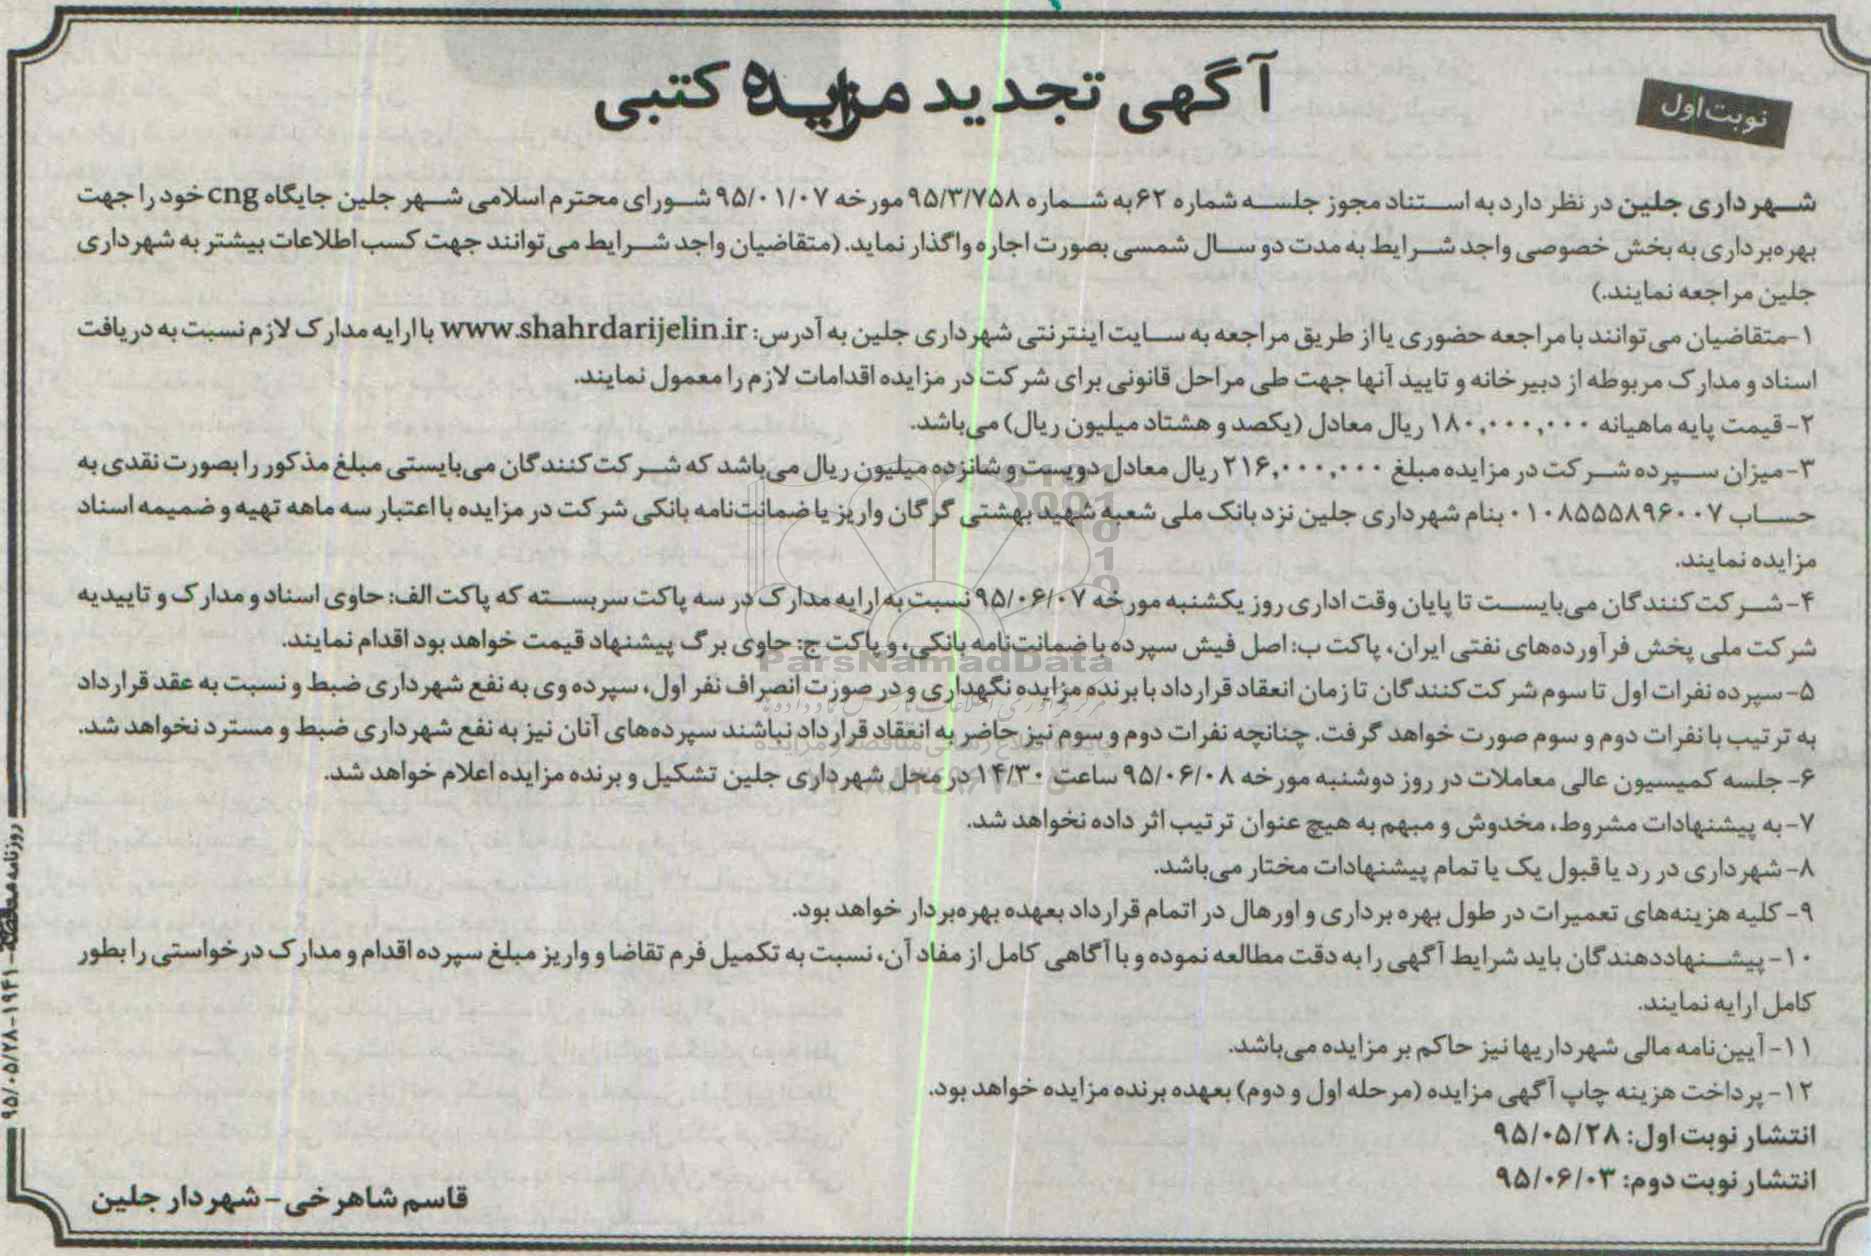 آگهی تجدید مزایده کتبی
نوبت اول
شهرداری جلین در نظر دارد به استناد مجوز جلسه شماره ۶۲ به شماره ۹۵/۳/۷۵۸ مورخه ۹۵/۰۱/۰۷ شورای محترم اسلامی شهر جلین جایگاه cng خود را جهت
بهره‌برداری به بخش خصوصی واجد شرایط به مدت دو سال شمسی بصورت اجاره واگذار نماید. (متقاضیان واجد شرایط می‌توانند جهت کسب اطلاعات بیشتر به شهرداری
جلین مراجعه نمایند.)
۱-متقاضیان می‌توانند با مراجعه حضوری یا از طریق مراجعه به سایت اینترنتی شهرداری جلین به آدرس: www.shahrdarijelin.ir با ارایه مدارک لازم نسبت به دریافت
اسناد و مدارک مربوطه از دبیرخانه و تایید آنها جهت طی مراحل قانونی برای شرکت در مزایده اقدامات لازم را معمول نمایند.
۲- قیمت پایه ماهیانه ۱۸۰,۰۰۰,۰۰۰ ریال معادل (یکصد و هشتاد میلیون ریال) می‌باشد.
۳- میزان سپرده شرکت در مزایده مبلغ ۲۱۶,۰۰۰,۰۰۰ ریال معادل دویست و شانزده میلیون ریال می‌باشد که شرکت‌کنندگان می‌بایستی مبلغ مذکور را بصورت نقدی به
حساب ۰۱۰۸۵۵۵۸۹۶۰۰۷ بنام شهرداری جلین نزد بانک ملی شعبه شهید بهشتی گرگان واریز یا ضمانت‌نامه بانکی شرکت در مزایده با اعتبار سه ماهه تهیه و ضمیمه اسناد
مزایده نمایند.
۴- شرکت‌کنندگان می‌بایست تا پایان وقت اداری روز یکشنبه مورخه ۹۵/۰۶/۰۷ نسبت به ارایه مدارک در سه پاکت سربسته که پاکت الف: حاوی اسناد و مدارک و تاییدیه
شرکت ملی پخش فرآورده‌های نفتی ایران، پاکت ب: اصل فیش سپرده یا ضمانت‌نامه بانکی، و پاکت ج: حاوی برگ پیشنهاد قیمت خواهد بود اقدام نمایند.
۵- سپرده نفرات اول تا سوم شرکت‌کنندگان تا زمان انعقاد قرارداد با برنده مزایده نگهداری و در صورت انصراف نفر اول، سپرده وی به نفع شهرداری ضبط و نسبت به عقد قرارداد
به ترتیب با نفرات دوم و سوم صورت خواهد گرفت. چنانچه نفرات دوم و سوم نیز حاضر به انعقاد قرارداد نباشند سپرده‌های آنان نیز به نفع شهرداری ضبط و مسترد نخواهد شد.
۶- جلسه کمیسیون عالی معاملات در روز دوشنبه مورخه ۹۵/۰۶/۰۸ ساعت ۱۴/۳۰ در محل شهرداری جلین تشکیل و برنده مزایده اعلام خواهد شد.
۷- به پیشنهادات مشروط، مخدوش و مبهم به هیچ عنوان ترتیب اثر داده نخواهد شد.
۸- شهرداری در رد یا قبول یک یا تمام پیشنهادات مختار می‌باشد.
۹- کلیه هزینه‌های تعمیرات در طول بهره برداری و اورهال در اتمام قرارداد بعهده بهره‌بردار خواهد بود.
۱۰- پیشنهاددهندگان باید شرایط آگهی را به دقت مطالعه نموده و با آگاهی کامل از مفاد آن، نسبت به تکمیل فرم تقاضا و واریز مبلغ سپرده اقدام و مدارک درخواستی را بطور
کامل ارایه نمایند.
۱۱- آیین‌نامه مالی شهرداریها نیز حاکم بر مزایده می‌باشد.
۱۲- پرداخت هزینه چاپ آگهی مزایده (مرحله اول و دوم) بعهده برنده مزایده خواهد بود.
انتشار نوبت اول: ۹۵/۰۵/۲۸
انتشار نوبت دوم: ۹۵/۰۶/۰۳
قاسم شاهرخی - شهردار جلین
روزنامه مناقصه - ۱۹۴۱ - ۹۵/۰۵/۲۸
ParsNamadData